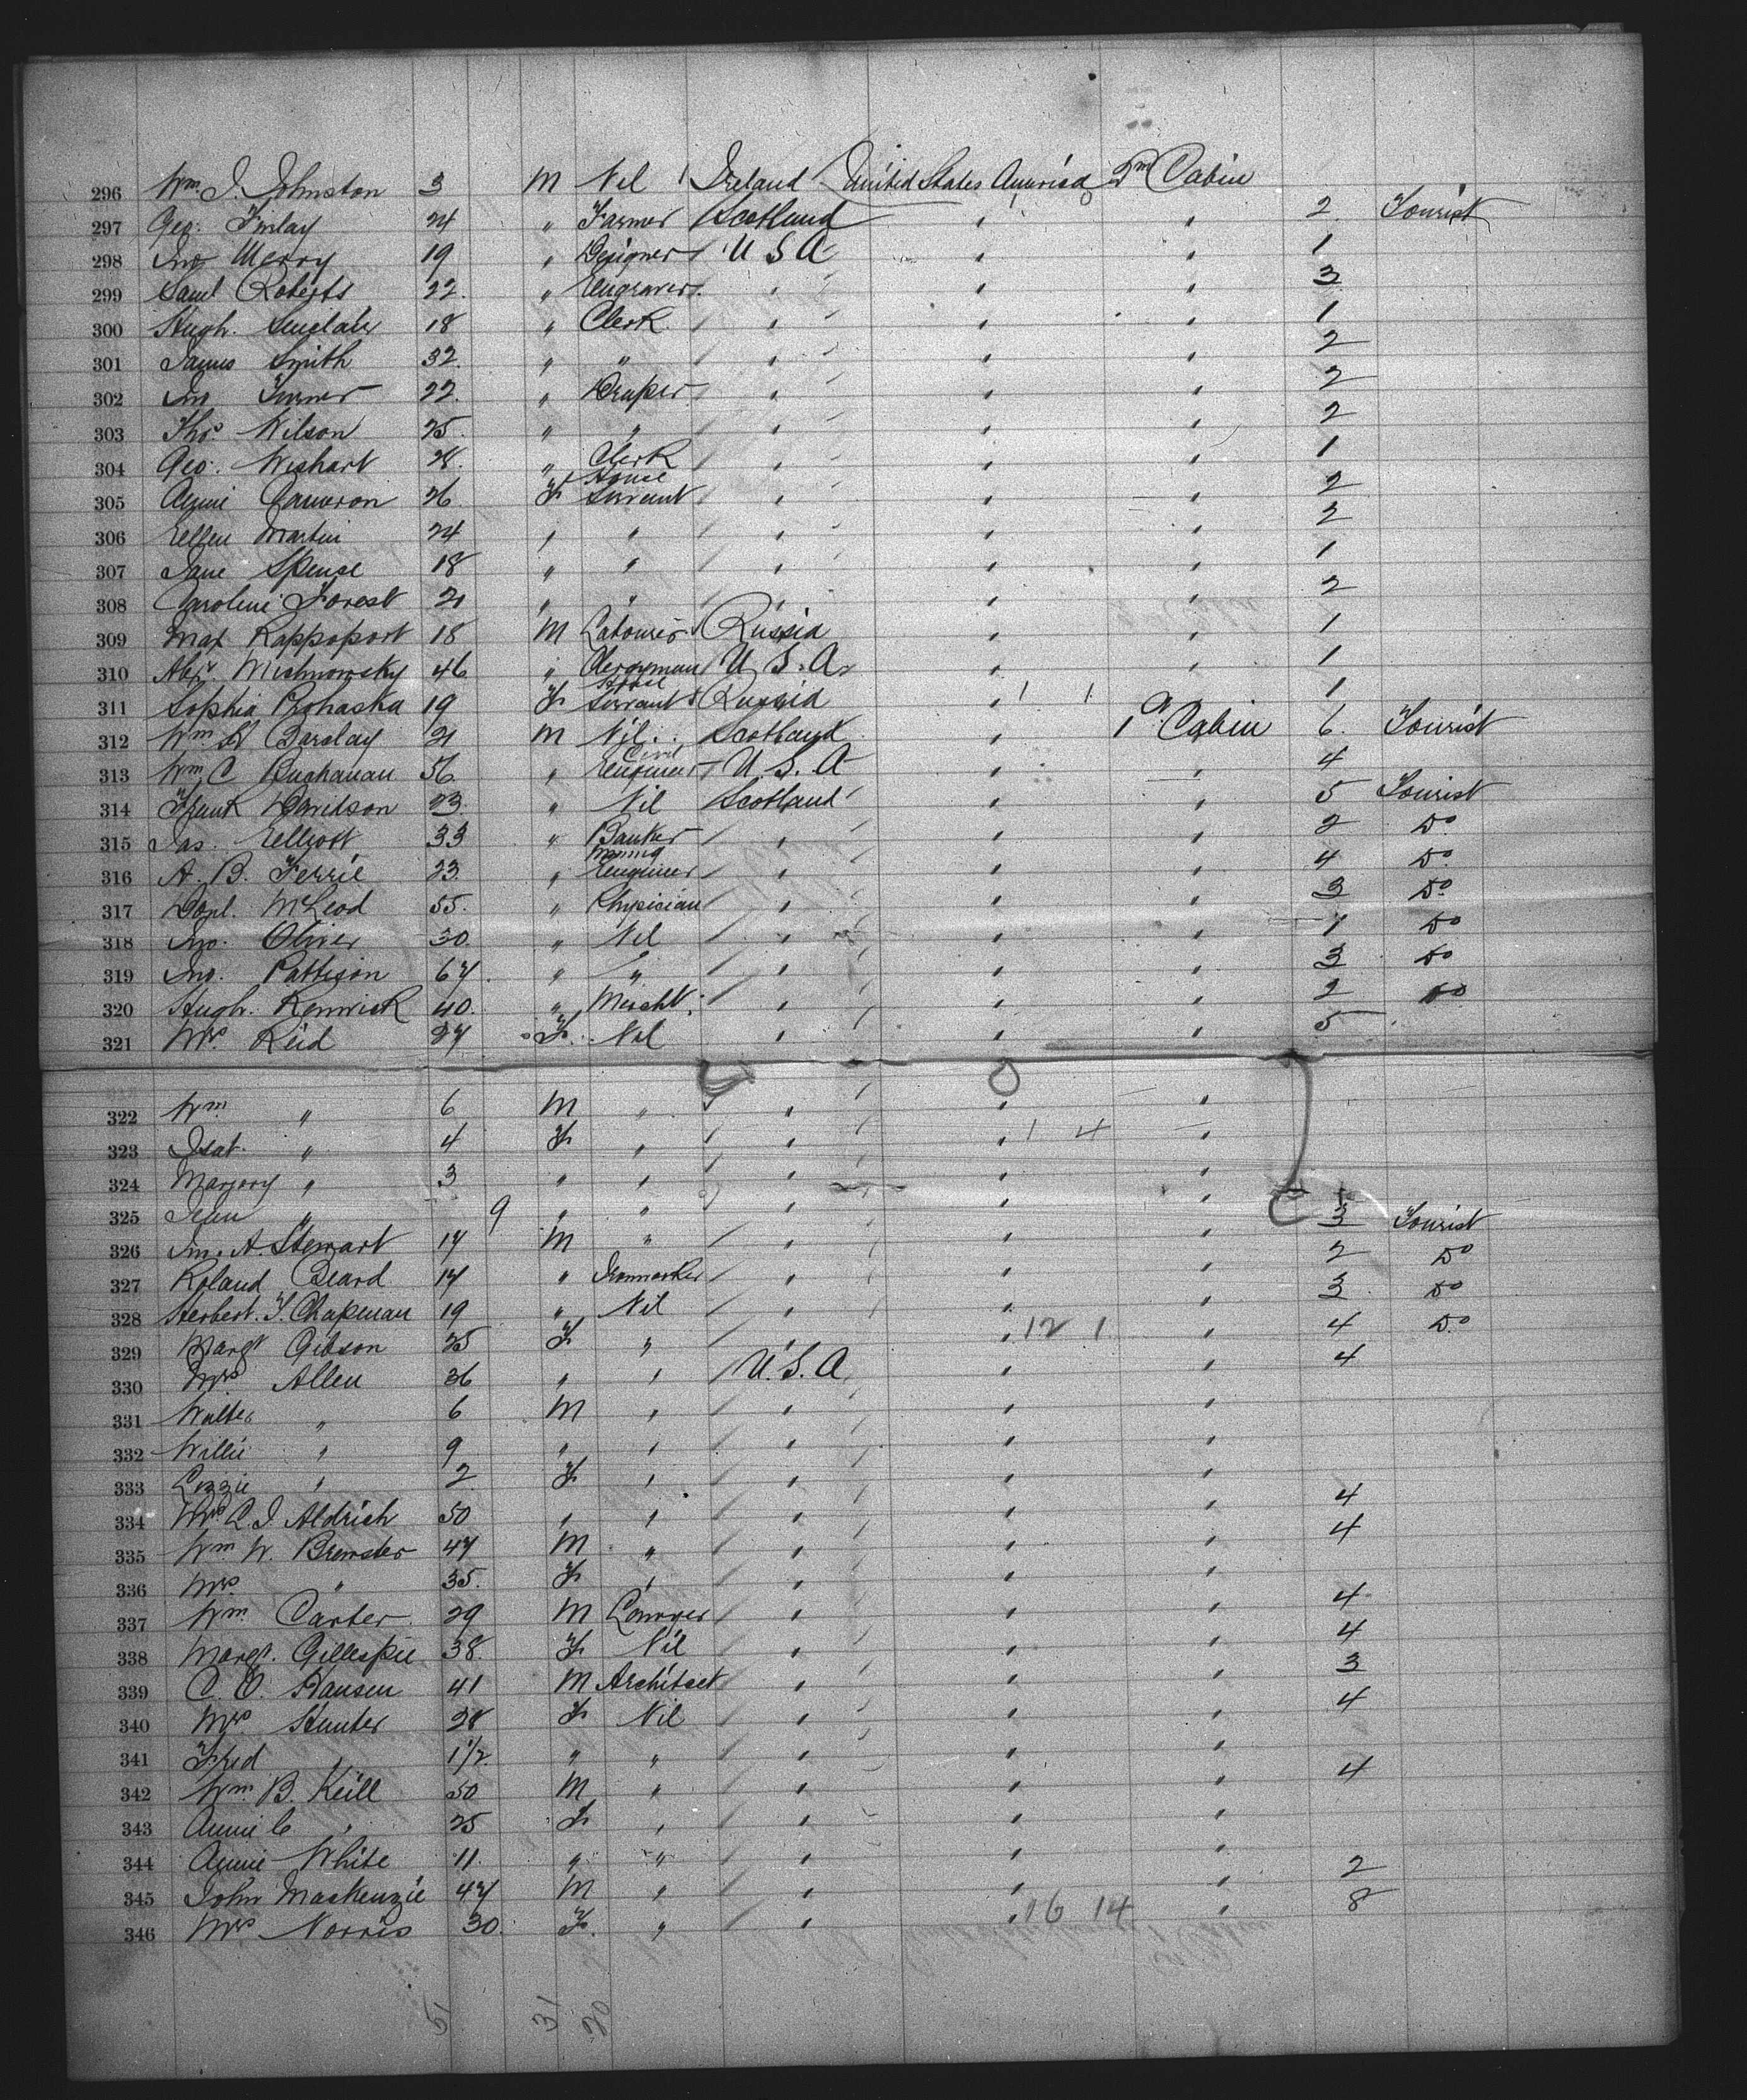 296 Wm. J. Johnston 3 M Nil Ireland United States America 2nd Cabin
297 Geo. Finlay 24 " Farmer Scotland " " 2 Tourist
298 Jno Merry 19 " Designer U S A " " 1
299 Saml Roberts 22 " Engraver " " " 3
300 Hugh. Sinclair 18 " Clerk " " " 1
301 James Smith 32 " " " " " 2
302 Jno Turner 22 " Draper " " " 2
303 Thos. Wilson 25 " " " " " 2
304 Geo. Wishart 28 " Clerk " " " 1
305 Annie Cameron 26 F House Servant " " " 2
306 Ellen Martin 24 " " " " " 2
307 Jane Spense 18 " " " " " 1
308 Caroline Forest 21 " " " " " 2
309 Max Rappoport 18 M Labourer Russia " " 1
310 Alexr. Mishnowsky 46 " Clergyman U. S. A. " " 1
311 Sophia Prohaska 19 F House Servant Russia " 1 1 1
312 Wm. Barclay 21 M Nil Scotland " 1st Cabin 6 Tourist
313 Wm C Buchanan 56 " Civil Engineer U. S. A " " 4
314 Frank Davidson 23 " Nil Scotland " " 5 Tourist
315 Jas. Elliott 33 " Banker " " " 2 Do
316 A. B. Ferrie 23 " Mining Engineer " " " 4 Do
317 Donl. McLeod 55 " Physician " " " 3 Do
318 Jno. Oliver 30 " Nil " " " 1 Do
319 Jno. Pattison 67 " " " " " 3 Do
320 Hugh. Renwick 40 " Mercht. " " " 2 Do
321 Mrs. Reid 27 F Nil " " " 5
322 Wm " 6 M " " " "
323 Isat. " 4 F " " " 1 4 "
324 Marjory " 3 " " " " "
325 Jean " 9 " " " " "
326 Jno. A. Stewart 17 M " " " " 3 Tourist
327 Roland Beard 17 " Ironmonger " " " 2 Do
328 Herbert. T. Chapman 19 " Nil " " " 3 Do
329 Margt Gibson 25 F " " " 12 1 " 4 Do
330 Mrs Allen 36 " " U. S. A " " 4
331 Walter " 6 M " " " "
332 Willie " 9 " " " " "
333 Lizzie " 2 F " " " "
334 Mrs C. J. Aldrich 50 " " " " " 4
335 Wm W. Brewster 47 M " " " " 4
336 Mrs " 35 F " " " "
337 Wm. Carter 29 M Lawyer " " " 4
338 Margt. Gillespie 38 F Nil " " " 4
339 C. O. Hansen 41 M Architect " " " 3
340 Mrs Hunter 28 F Nil " " " 4
341 Fred " 1 1/2 " " " " "
342 Wm. B. Keill 50 M " " " " 4
343 Annie C. " 25 F " " " "
344 Annie White 11 " " " " "
345 John Mackenzie 47 M " " " " 2
346 Mrs Norris 30 F " " " 16 14 " 8
51 31 20